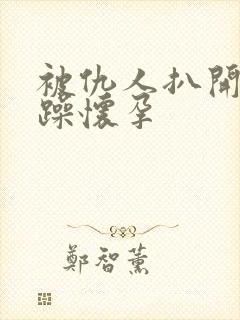 被仇人扒開
躁懷孕
鄭智薰